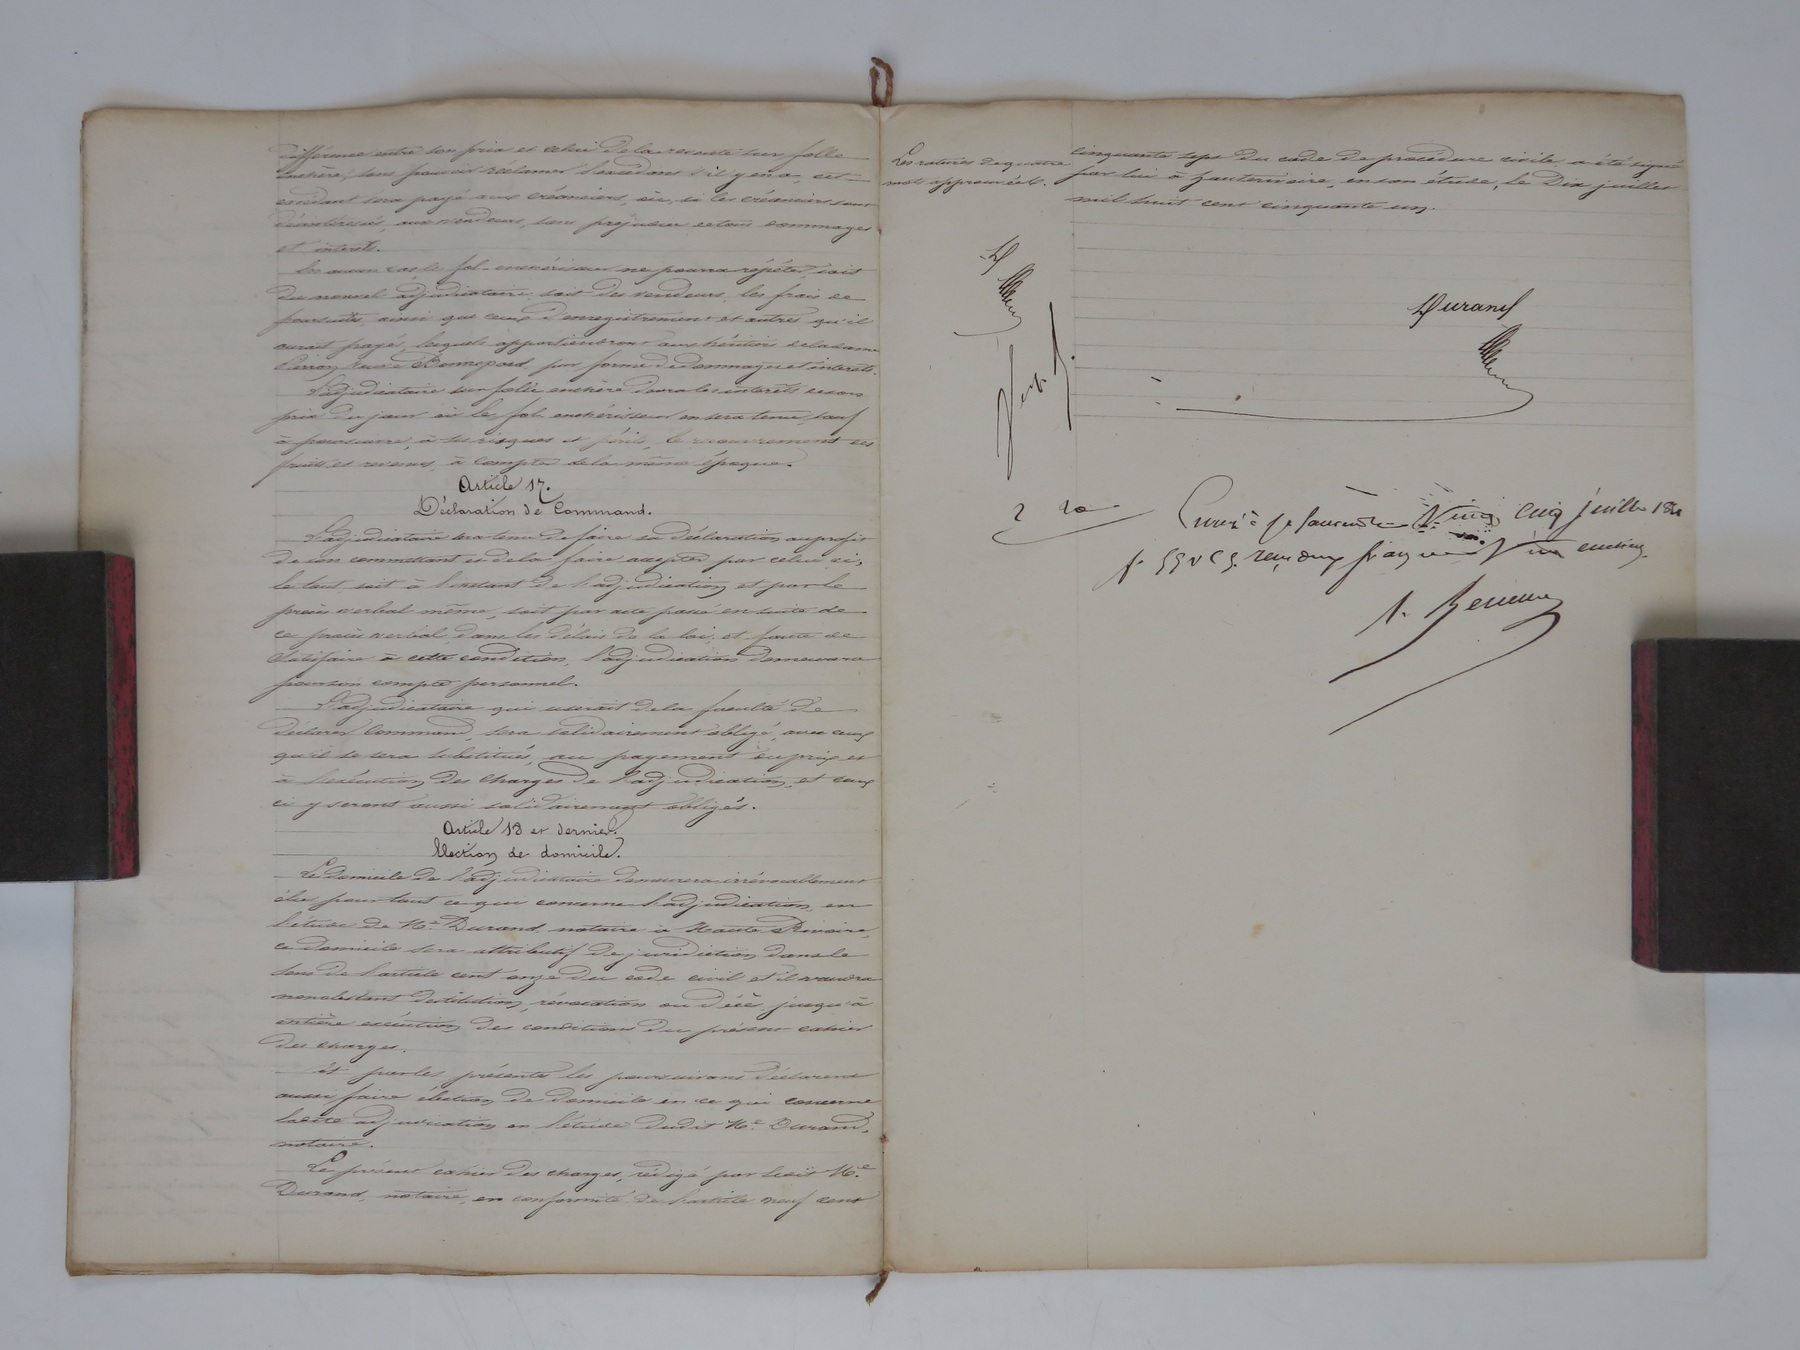 différence entre son prix et celui de la revente sur folle
enchère, sans pouvoir réclamer l'excédant s'il y en a, cet
excédant sera payé aux créanciers, où, si les créanciers sont
désintéressés, aux vendeurs, sans préjudice de tous dommages
et intérêts.
En aucun cas, le fol-enchérisseur ne pourra répéter, soit
du nouvel adjudicataire, soit des vendeurs, les frais de
poursuite, ainsi que ceux d'enregistrement et autres qu'il
aurait payés, lesquels appartiendront aux héritiers de la dame
veuve par forme de dommages et intérêts.
L'adjudicataire sur folle enchère devra les intérêts de son
prix du jour où le fol-enchérisseur en sera tenu, sauf
à poursuivre, à ses risques et périls, le recouvrement des
fruits et revenus, à compter de la même époque.
Article 17.
Déclaration de Command.
L'adjudicataire sera tenu de faire sa déclaration au profit
de son committant et de la faire accepter par celui-ci,
le tout soit à l'instant de l'adjudication et par le
procès verbal même, soit par acte passé en suite de
ce procès verbal dans les délais de la loi, et faute de
satisfaire à cette condition, l'adjudication demeurera
pour son compte personnel.
L'adjudicataire qui userait de la faculté de
déclarer Command, sera solidairement obligé, avec ceux
qu'il se sera substitués, au payement du prix et
à l'exécution des charges de l'adjudication, et ceux
ci y seront aussi solidairement obligés.
Article 18 et dernier.
Election de domicile.
Le domicile de l'adjudicataire demeurera irrévocablement
élu pour tout ce qui concerne l'adjudication, en
l'étude de Me Durand, notaire à Haute Rivoire,
ce domicile sera attributif de juridiction dans le
sens de l'article cent onze du code civil et il vaudra
nonobstant destitution, révocation ou décè jusqu'à
entière exécution des conditions du présent cahier
des charges.
Et par les présentes les poursuivans déclarent
aussi faire élection de domicile en ce qui concerne
ladite adjudication en l'étude dudit Me Durand,
notaire.
Le présent cahier des charges, rédigé par ledit Me
Durand, notaire, en conformité de l'article neuf cent
Les ratures de quatre
mots approuvées.
cinquante sept du code de procédure civile a été signé
par lui à hauterivoire, en son étude, le Dix juillet
mil huit cent cinquante un.
Durand
Vingt Cinq juillet 1851
reçu deux francs